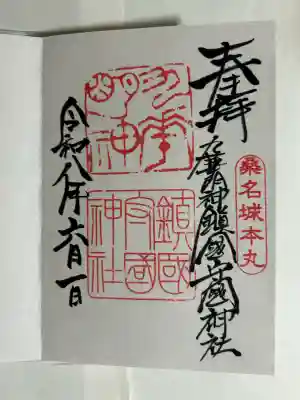 奉拝
桑名城本丸
九華明神鎮國守國神社
九華
明神
鎮國
守國
神社
令和八年六月一日